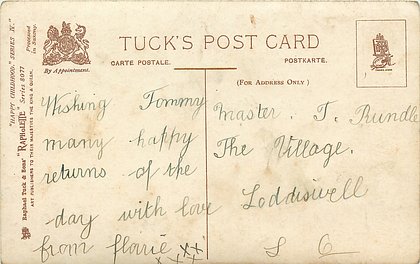 TUCK'S POST CARD
CARTE POSTALE.
POSTKARTE.
By Appointment.
(FOR ADDRESS ONLY)
"HAPPY CHILDHOOD." SERIES IV.
"RAPHOLETTE" Series 8077
Raphael Tuck & Sons'
ART PUBLISHERS TO THEIR MAJESTIES THE KING & QUEEN.
Wishing Tommy
many happy
returns of the
day with love
from florrie xx
xxx
Master. T. Rundle
The Village.
Loddiswell
S